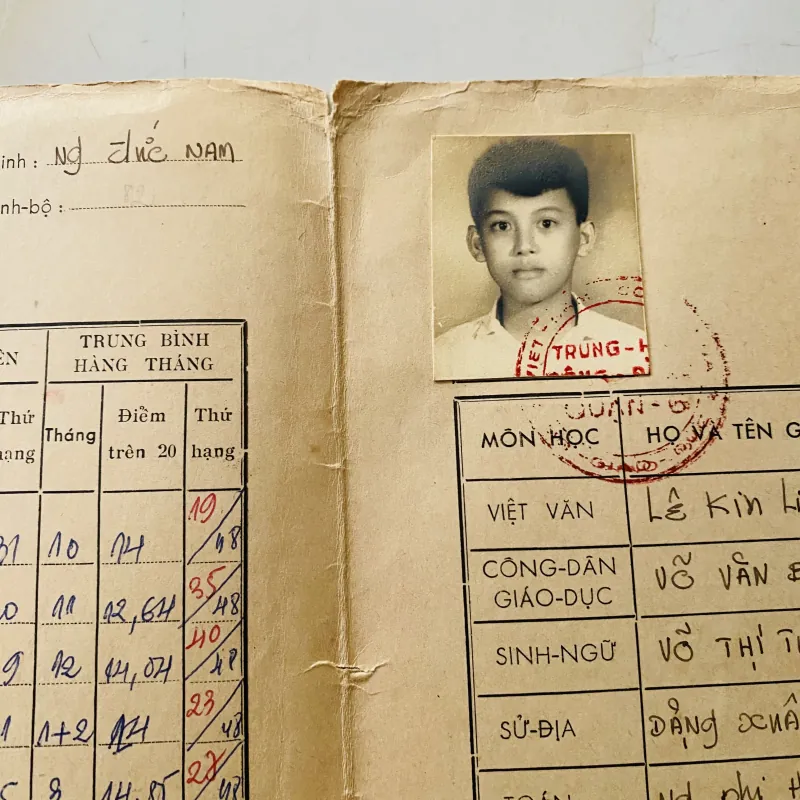 inh : Ng đức NAM
nh-bộ :
ÊN
TRUNG BÌNH
HÀNG THÁNG
Thứ
hạng
Tháng
Điểm
trên 20
Thứ
hạng
31 10 14 19/48
0 11 12,64 35/48
9 12 14,04 40/48
1 1+2 14 23/48
14,85 /48
VIỆT
TRUNG-H
QUẬN-6
MÔN HỌC
HỌ VÀ TÊN G
VIỆT VĂN
LÊ Kim
CÔNG-DÂN
GIÁO-DỤC
VÕ VĂN
SINH-NGỮ
VÕ THỊ
SỬ-ĐỊA
ĐẶNG XUÂ
TOÁN
Ng phi